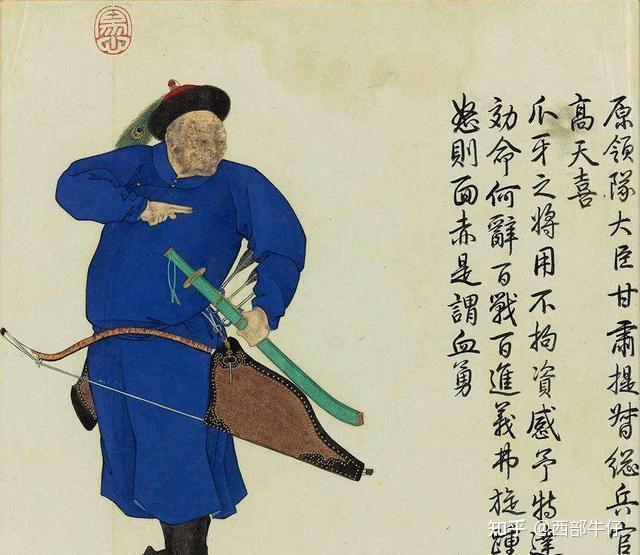 原領隊大臣甘肅提督緫兵官
高天喜
爪牙之將用不拘資感予特達
効命何辭百戰百進義弗旋踵
怒則面赤是謂血勇
知乎 @西部牛仔